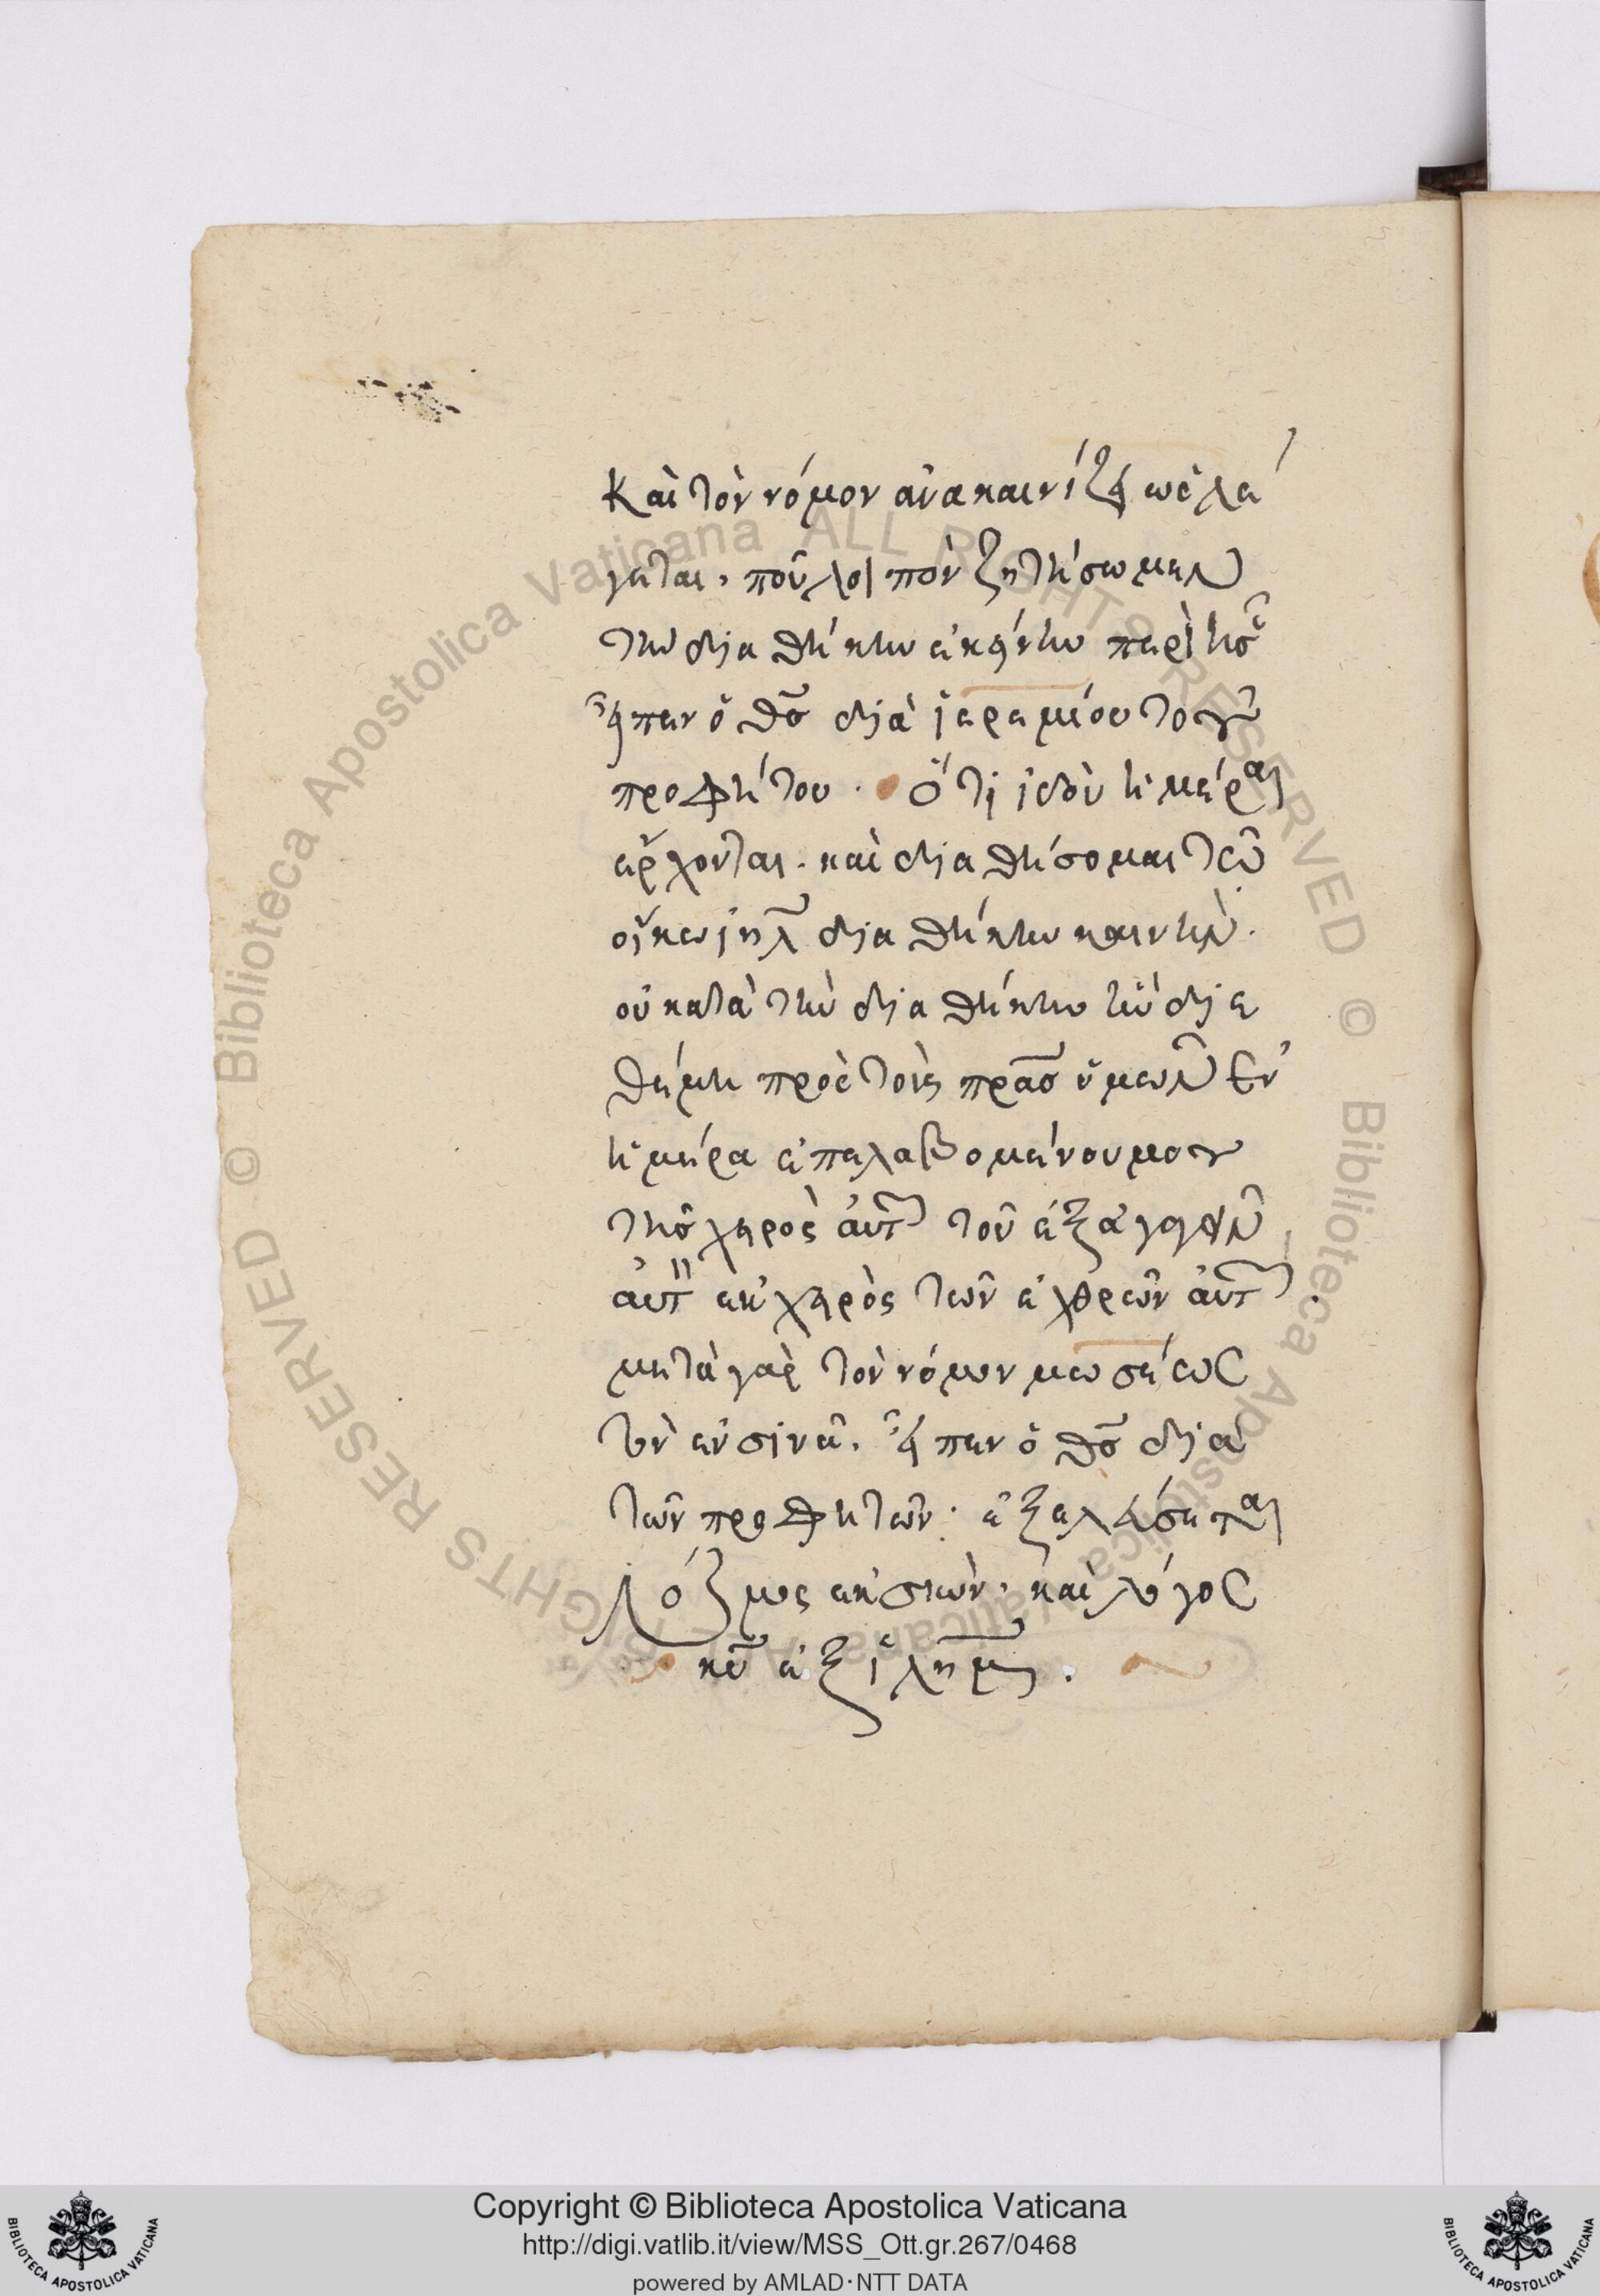 Καὶ τὸν νόμον ἀνακαινίζει ὡς λέ
γεται, ποῦ λοιπὸν ζητήσωμεν
τὴν διαθήκην ἐκείνην περὶ ἧς
εἶπεν ὁ θς διὰ ἱερεμίου τοῦ
προφήτου. Ὅτι ἰδοὺ ἡμέραι
ἔρχονται. καὶ διαθήσομαι τῶ
οἴκω ιηλ διαθήκην καινὴν.
οὐ κατὰ τὴν διαθήκην ἣν διε
θέμην πρὸς τοὺς πρας ὑμῶν ἐν
ἡμέρα ἐπιλαβομένου μου
τῆς χειρὸς αὐτ τοῦ ἐξαγαγεῖν
αὐτ ἐκ χειρὸς τῶν ἐχθρῶν αὐτ.
μετὰ γὰρ τὸν νόμον μωσέως
τὸν ἐν σινᾶ. εἶπεν ὁ θς διὰ
τῶν προφητῶν. ἐξελεύσεται
νόμος ἐκ σιὼν, καὶ λόγος
κυ ἐξ ιλημ.
Copyright © Biblioteca Apostolica Vaticana
http://digi.vatlib.it/view/MSS_Ott.gr.267/0468
powered by AMLAD·NTT DATA